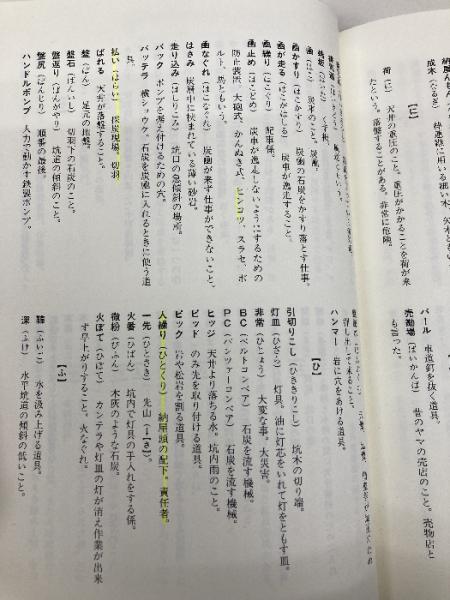 成木（なるぎ）
【に】
荷（に）　天井の重圧のこと。重圧がかかることを荷が来
たという。落盤することがある。非常に危険。
函（はこ）　炭車のこと。炭函。
函かすり（はこかすり）　炭函の石炭をかすり落とす仕事。
函が走る（はこがはしる）　炭車が逸走すること。
函繰り（はこぐり）　配車係。
函止め（はこどめ）　炭車が逸走しないようにするための
防止装置。大砲式、かんぬき式、ヒンコツ、スラセ、ボ
ルト、馬ともいう。
函なぐれ（はこなぐれ）　炭函が来ず仕事ができないこと。
はさみ　炭層中に挟まれている薄い砂岩。
走り込み（はしりこみ）　坑口の急傾斜の場所。
バック　ポンプを据え付けるための穴。
バッテラ　横ショウケ。石炭を炭函に入れるときに使う道
具。
払い（はらい）　採炭現場。切羽。
ばれる　天井が落盤すること。
盤（ばん）　足元の地盤。
盤石（ばんいし）　切羽下の石炭のこと。
盤返り（ばんがやり）　坑道の傾斜のこと。
盤尻（ばんじり）　順番の最後。
ハンドルポンプ　人力で動かす鉄製ポンプ。
バール　車道釘を抜く道具。
売勘場（ばいかんば）　昔のヤマの売店のこと。売物店と
も言った。
ハンマー　岩に穴をあける道具。
【ひ】
引切りこし（ひききりこし）　坑木の切り端。
灯皿（ひざら）　灯具。油に灯芯をいれて灯をともす皿。
非常（ひじょう）　大変な事。大災害。
BC（ベルトコンベア）　石炭を流す機械。
PC（パンツァーコンベア）　石炭を流す機械。
ヒッジ　天井より落ちる水。坑内雨のこと。
ビッド　のみ先を取り付ける道具。
ピック　石や松岩を割る道具。
人繰り（ひとくり）　納屋頭の配下。責任者。
一先（ひとさき）　先山（一人）
火番（ひばん）　坑内で灯具の手入れをする係。
微粉（びふん）　木灰のような石炭。
火ぼて（ひぼて）　カンテラや灯皿の灯が消え作業が出来
ず早上がりすること。火なぐれ。
【ふ】
鞴（ふいご）　水を汲み上げる道具。
深（ふけ）　水平坑道の傾斜の低いこと。